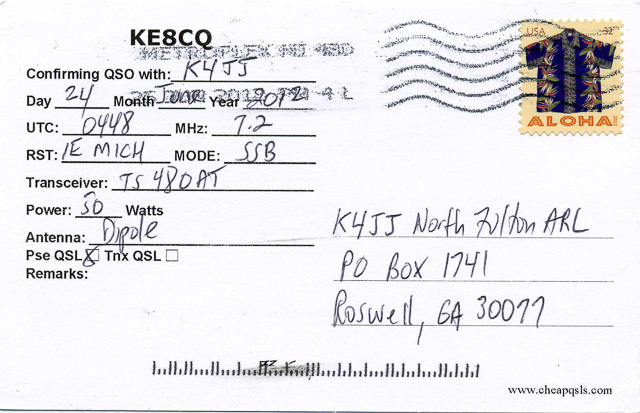 KE8CQ
METROPLEX MI 480
Confirming QSO with: K4JJ
Day 24 Month June Year 2012
UTC: 0448 MHz: 7.2
RST: 1E MICH MODE: SSB
Transceiver: TS 480AT
Power: 50 Watts
Antenna: Dipole
Pse QSL X Tnx QSL
Remarks:
USA 32
ALOHA
K4JJ North Fulton ARL
PO Box 1741
Roswell, GA 30077
www.cheapqsls.com